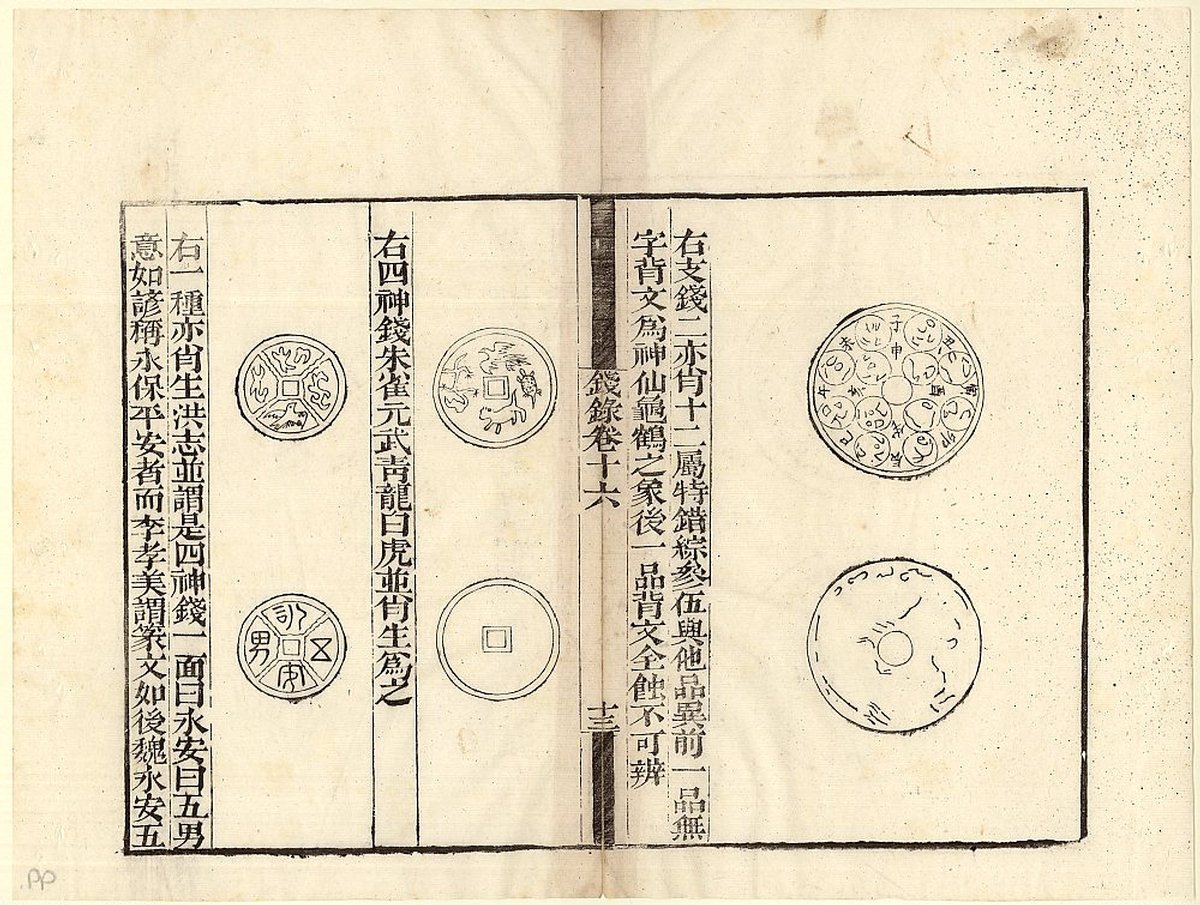 子
丑
寅
卯
辰
巳
午
未
申
酉
戌
亥
右支錢二亦肖十二屬特錯綜參伍與他品異前一品無
字背文爲神仙龜鶴之象後一品背文全蝕不可辨
錢錄卷十六
十三
右四神錢朱雀元武靑龍白虎並肖生爲之
永
安
五
男
右一種亦肖生洪志並謂是四神錢一面曰永安曰五男
意如諺稱永保平安者而李孝美謂篆文如後魏永安五
pp